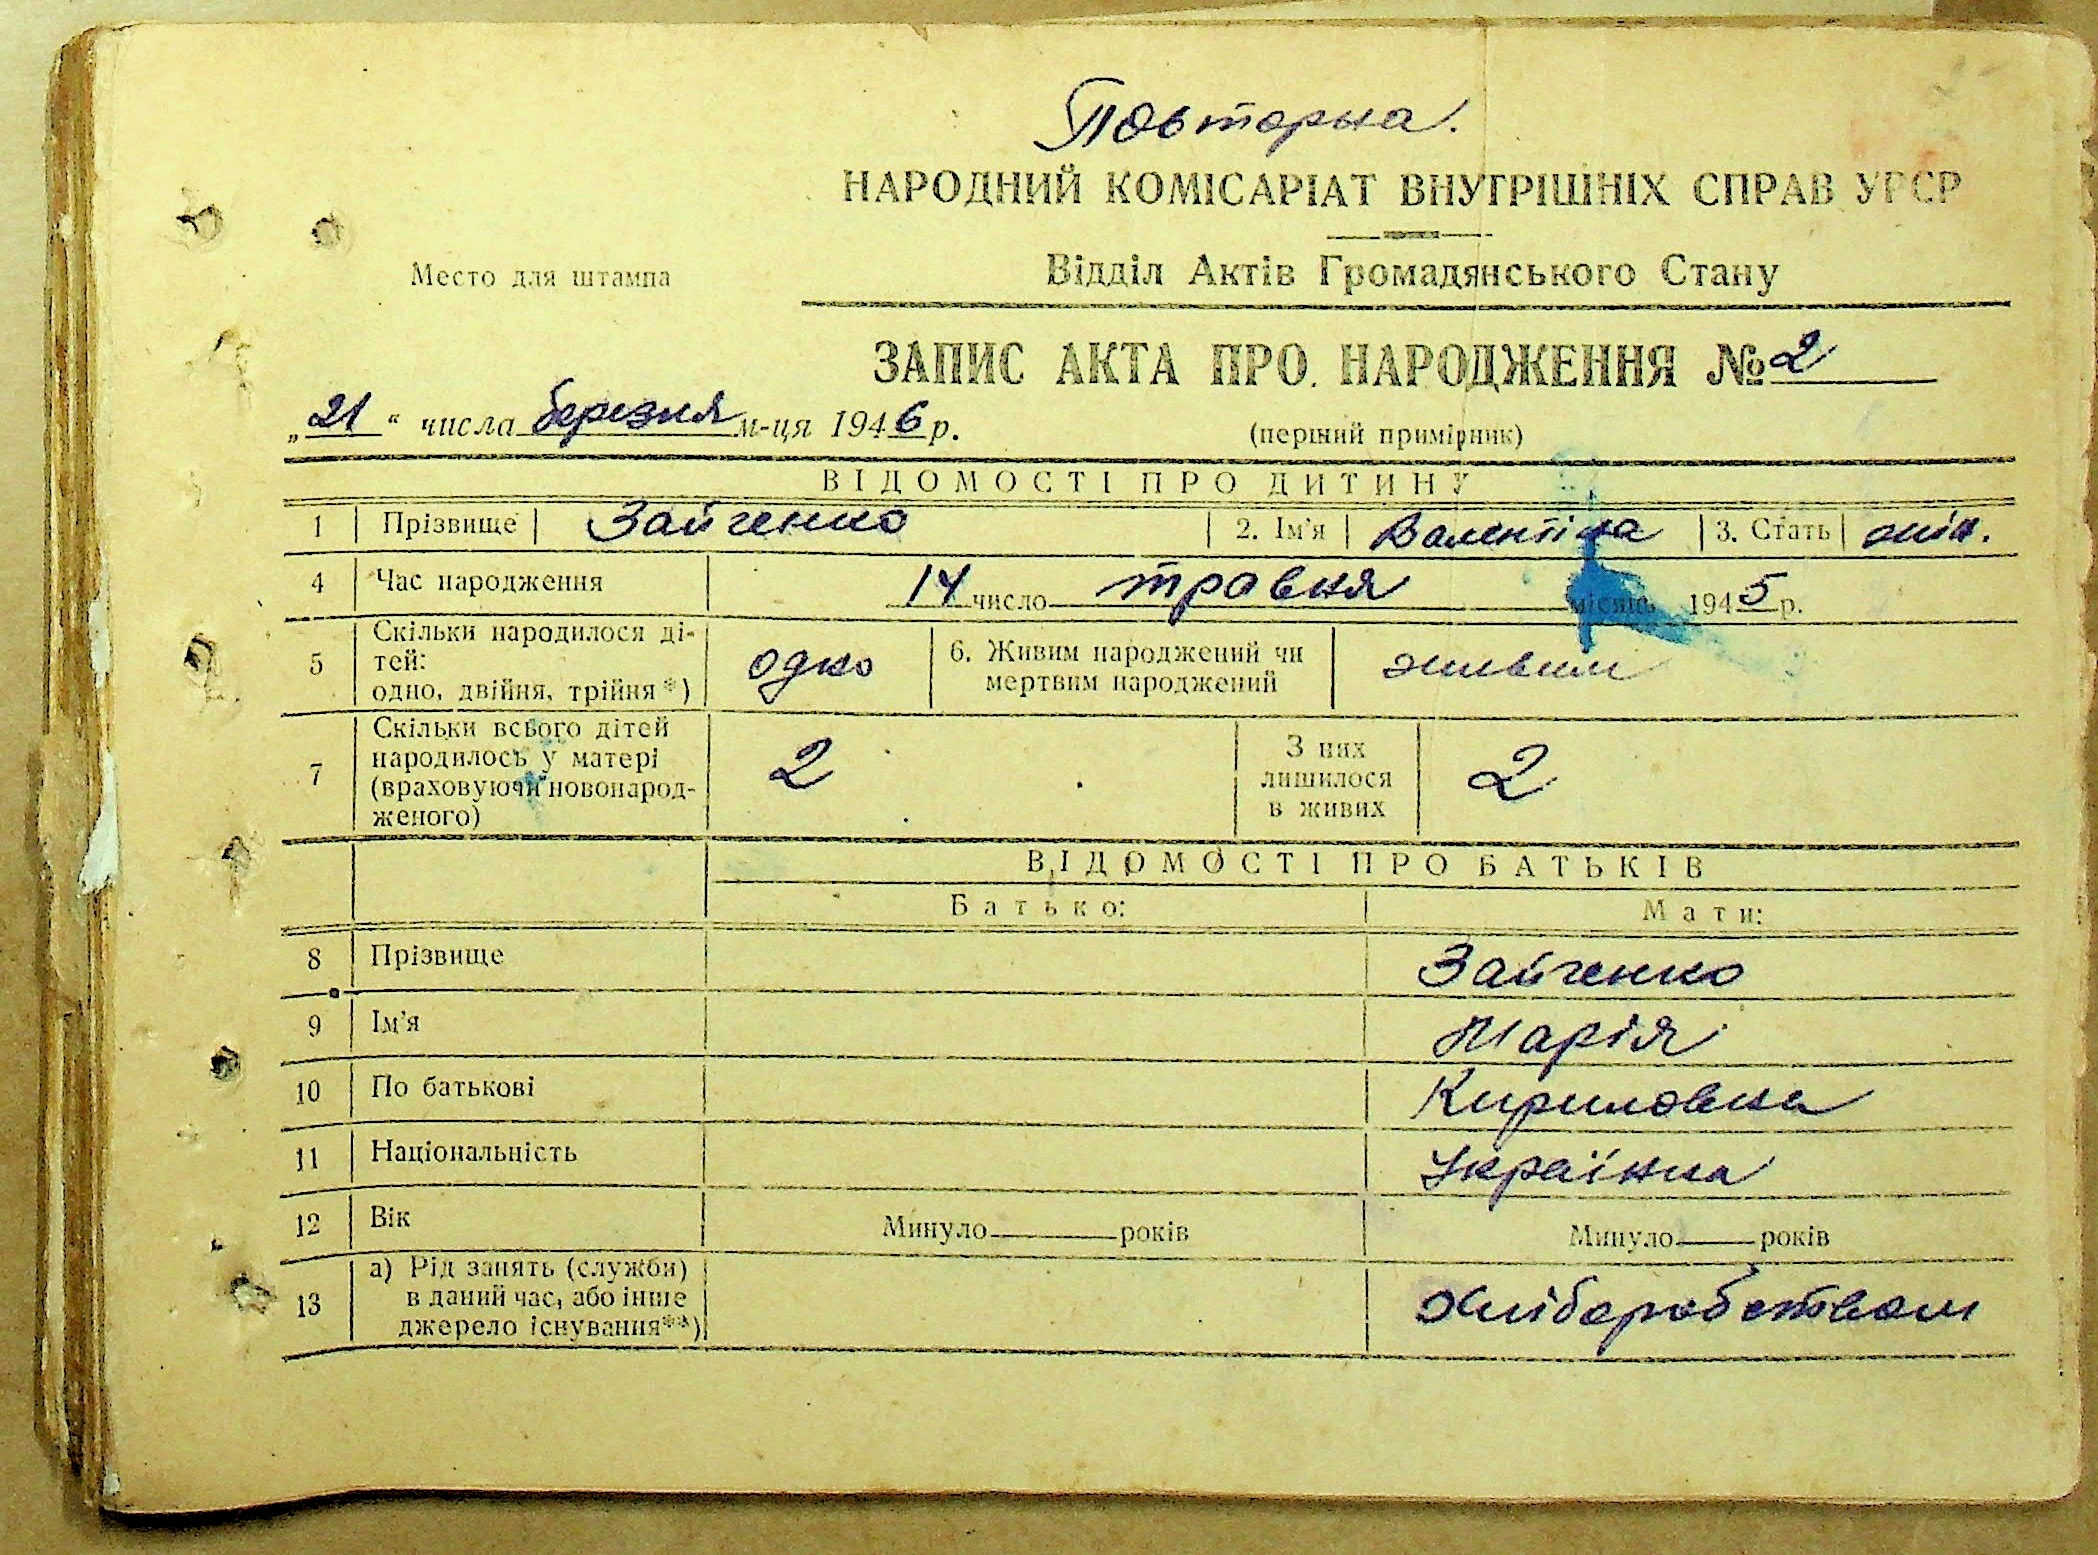 Повторна.
НАРОДНИЙ КОМІСАРІАТ ВНУТРІШНІХ СПРАВ УРСР
Место для штампа
Відділ Актів Громадянського Стану
ЗАПИС АКТА ПРО НАРОДЖЕННЯ № 2
„21“ числа березня м-ця 1946 р.
(перший примірник)
ВІДОМОСТІ ПРО ДИТИНУ
1 Прізвище Зайченко 2. Ім'я Валентіна 3. Стать жін.
4 Час народження 14 число травня місяць 1945 р.
5 Скільки народилося ді-
тей:
одно, двійня, трійня*) одно 6. Живим народжений чи
мертвим народжений живим
7 Скільки всього дітей
народилось у матері
(враховуючи новонарод-
женого) 2 З них
лишилося
в живих 2
ВІДОМОСТІ ПРО БАТЬКІВ
Батько: Мати:
8 Прізвище Зайченко
9 Ім'я Марія
10 По батькові Кириловна
11 Національність Українка
12 Вік Минуло років Минуло років
13 а) Рід занять (служби)
в даний час, або інше
джерело існування**) Хліборобством